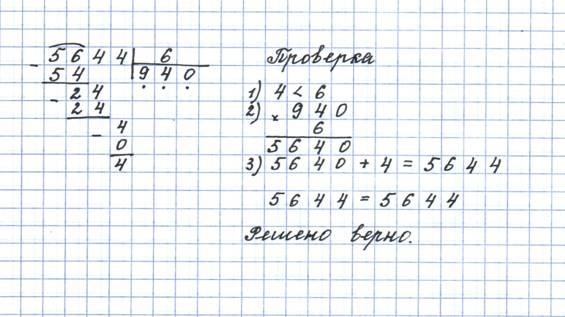 - 5 6 4 4 | 6
5 4 | 9 4 0
- 2 4
2 4
- 4
0
4
Проверка
1) 4 < 6
2) × 9 4 0
6
5 6 4 0
3) 5 6 4 0 + 4 = 5 6 4 4
5 6 4 4 = 5 6 4 4
Решено верно.